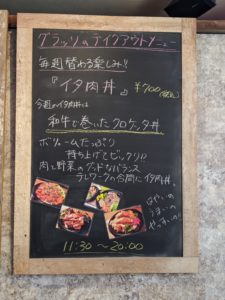 グラッツのテイクアウトメニュー
毎週替わる楽しみ!!
『イタ肉丼』 ¥700(税込)
今週のイタ肉丼は
和牛で巻いたクロケッタ丼
ボリュームたっぷり
持ち上げてビックリ!?
肉と野菜のグッドなバランス
テレワークの合間にイタ肉丼。
はやいの
うまーいの
やっすいの!
11:30〜20:00